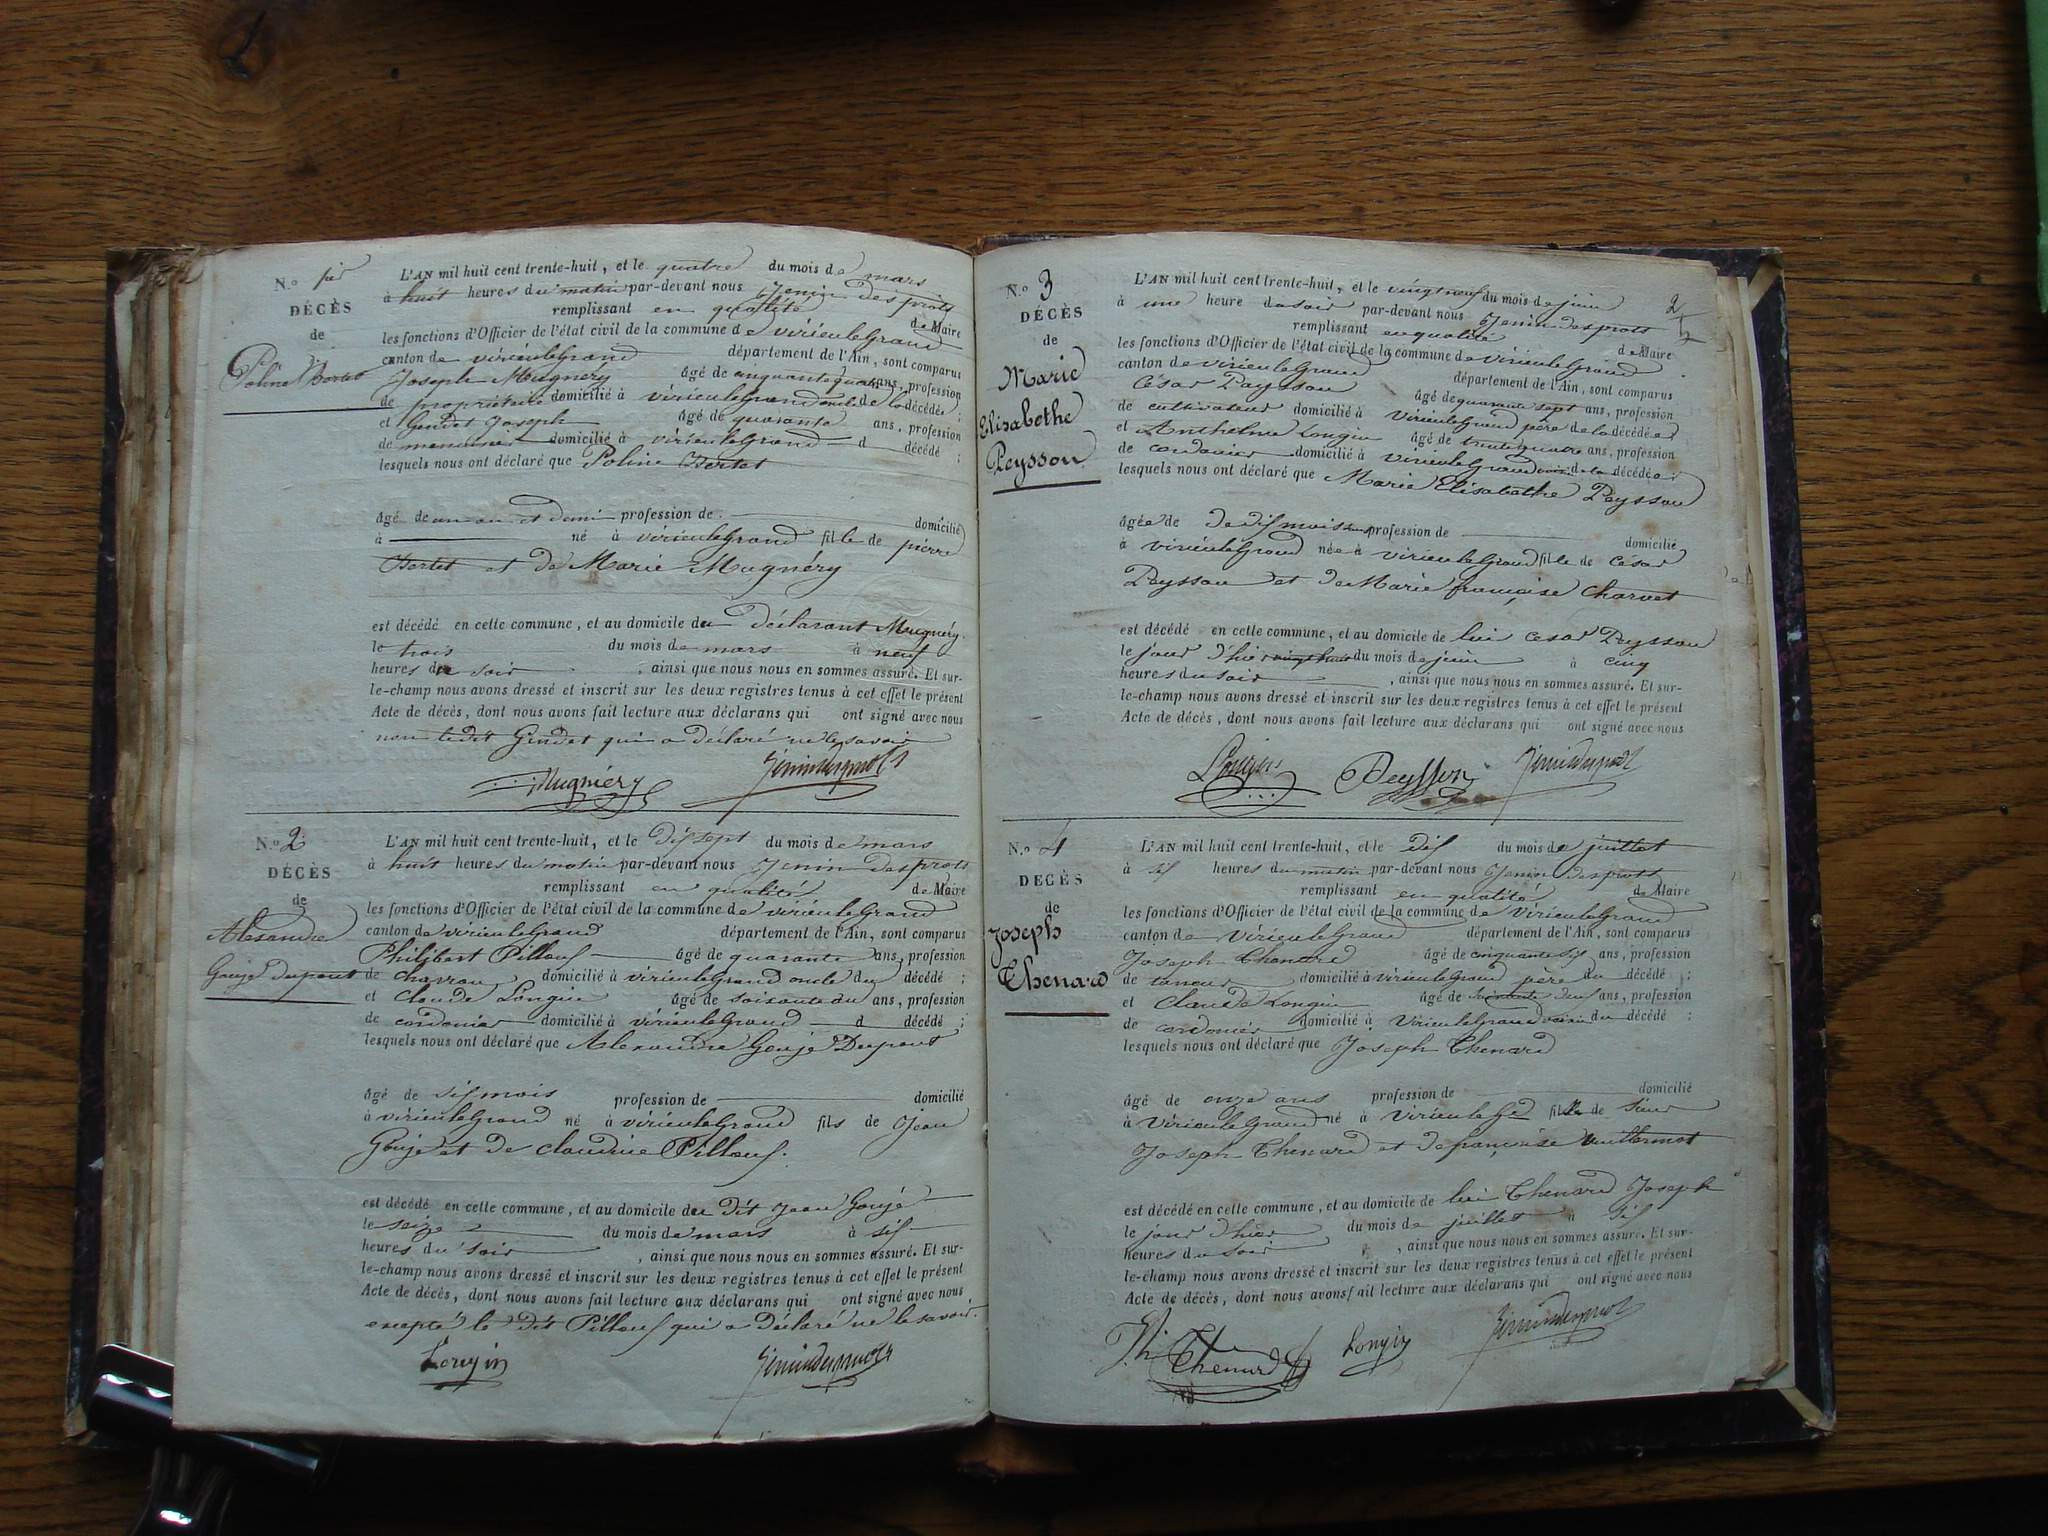 N.o 1er
DÉCÈS
de
Poline Bertet
L'AN mil huit cent trente-huit, et le quatre du mois de mars
à huit heures du matin par-devant nous Jenin desprots
remplissant en qualité de Maire
les fonctions d'Officier de l'état civil de la commune de virieu le Grand
canton de virieu le Grand département de l'Ain, sont comparus
Joseph Mugnéry âgé de cinquante quatre ans, profession
de propriétaire domicilié à virieu le Grand oncle de la décédée ;
et Gendet Joseph âgé de quarante ans, profession
de menuisier domicilié à virieu le Grand d décédé ;
lesquels nous ont déclaré que Poline Bertet
âgé de un an et demi profession de domicilié
à né à virieu le Grand fille de pierre
Bertet et de Marie Mugnéry
est décédé en cette commune, et au domicile du déclarant Mugnéry
le trois du mois de mars à neuf
heures du soir , ainsi que nous nous en sommes assuré. Et sur-
le-champ nous avons dressé et inscrit sur les deux registres tenus à cet effet le présent
Acte de décès, dont nous avons fait lecture aux déclarans qui ont signé avec nous
non ledit Gendet qui a déclaré ne le savoir
Mugniéry Jenindesprots
N.o 2
DÉCÈS
de
Alexandre
Goujé dupont
L'AN mil huit cent trente-huit, et le dis sept du mois de mars
à huit heures du matin par-devant nous Jenin desprots
remplissant en qualité de Maire
les fonctions d'Officier de l'état civil de la commune de virieu le Grand
canton de virieu le Grand département de l'Ain, sont comparus
Philibert Pillouf âgé de quarante ans, profession
de charron domicilié à virieu le Grand oncle du décédé ;
et Claude Longin âgé de soixante du ans, profession
de cordonier domicilié à virieu le Grand d décédé ;
lesquels nous ont déclaré que Alexandre Goujé Dupont
âgé de sis mois profession de domicilié
à virieu le Grand né à virieu le Grand fils de Jean
Goujé et de claudine Pillouf.
est décédé en cette commune, et au domicile du dit Jean Goujé
le seize du mois de mars à sis
heures du soir , ainsi que nous nous en sommes assuré. Et sur-
le-champ nous avons dressé et inscrit sur les deux registres tenus à cet effet le présent
Acte de décès, dont nous avons fait lecture aux déclarans qui ont signé avec nous
excepté le dit Pillouf qui a déclaré ne le savoir.
Longin Jenindesprots
2
N.o 3
DÉCÈS
de
Marie
Elisabethe
Peysson
L'AN mil huit cent trente-huit, et le vingt neuf du mois de juin
à une heure du soir par-devant nous Jenin desprots
remplissant en qualité de Maire
les fonctions d'Officier de l'état civil de la commune de virieu le Grand
canton de virieu le Grand département de l'Ain, sont comparus
César Peysson âgé de quarante sept ans, profession
de cultivateur domicilié à virieu le Grand père de la décédée
et Anthelme Longin âgé de trente quatre ans, profession
de cordonier domicilié à virieu le Grand voisin de la décédée
lesquels nous ont déclaré que Marie Elisabethe Peysson
âgée de de dis mois profession de domicilié
à virieu le Grand née à virieu le Grand fille de César
Peysson et de Marie françoise Charvet
est décédé en cette commune, et au domicile de lui César Peysson
le jour d'hier vingt huit du mois de juin à cinq
heures du soir , ainsi que nous nous en sommes assuré. Et sur-
le-champ nous avons dressé et inscrit sur les deux registres tenus à cet effet le présent
Acte de décès, dont nous avons fait lecture aux déclarans qui ont signé avec nous
Longin Peysson Jenindesprots
N.o 4
DÉCÈS
de
Joseph
Thenard
L'AN mil huit cent trente-huit, et le dis du mois de juillet
à sis heures du matin par-devant nous Jenin desprots
remplissant en qualité de Maire
les fonctions d'Officier de l'état civil de la commune de virieu le Grand
canton de virieu le Grand département de l'Ain, sont comparus
Joseph Thenard âgé de cinquante sis ans, profession
de taneur domicilié à virieu le Grand père du décédé ;
et Claude Longin âgé de soixante deus ans, profession
de cordonier domicilié à virieu le Grand voisin du décédé ;
lesquels nous ont déclaré que Joseph Thenard
âgé de onze ans profession de domicilié
à virieu le Grand né à virieu le Gd fils de sieur
Joseph Thenard et de françoise Vuillermot
est décédé en cette commune, et au domicile de lui Thenard Joseph
le jour d'hier du mois de juillet à dis
heures du soir , ainsi que nous nous en sommes assuré. Et sur-
le-champ nous avons dressé et inscrit sur les deux registres tenus à cet effet le présent
Acte de décès, dont nous avons fait lecture aux déclarans qui ont signé avec nous
Jh Thenard Longin Jenindesprots